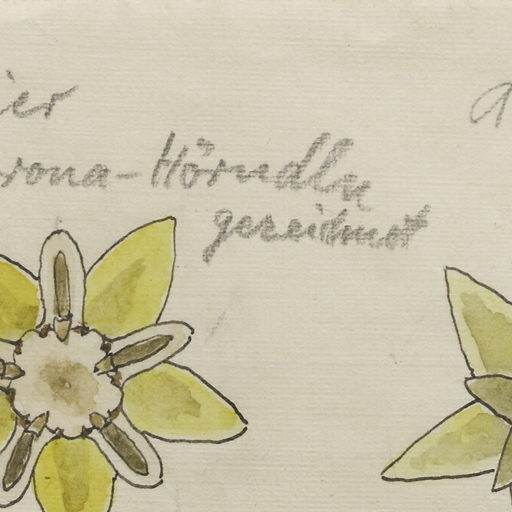 ier
rona-Hörndln
gezeichnet